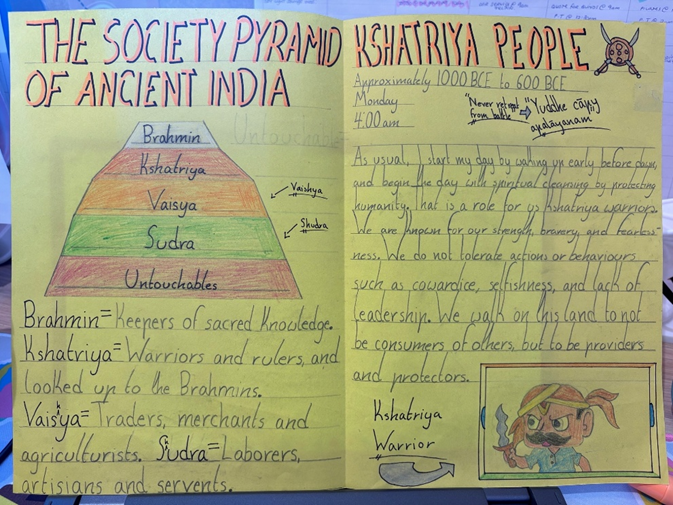 THE SOCIETY PYRAMID
OF ANCIENT INDIA
Untouchable
Brahmin
Kshatriya
Vaisya
Sudra
Untouchables
Vaishya
Shudra
Brahmin= Keepers of sacred Knowledge.
Kshatriya= Warriors and rulers, and
looked up to the Brahmins.
Vaisya= Traders, merchants and
agriculturists. Sudra= Laborers,
artisians and servents.
KSHATRIYA PEOPLE
Approximately 1000 BCE to 600 BCE
Monday
4:00am
"Never retreat
from battle
"Yuddhe cāpy
apalāyanam
As usual, I start my day by waking up early before dawn,
and begin the day with spiritual cleansing by protecting
humanity. That is a role for us Kshatriya warriors.
We are known for our strength, bravery, and fearless-
ness. We do not tolerate actions or behaviours
such as cowardice, selfishness, and lack of
leadership. We walk on this land to not
be consumers of others, but to be providers
and protectors.
Kshatriya
Warrior